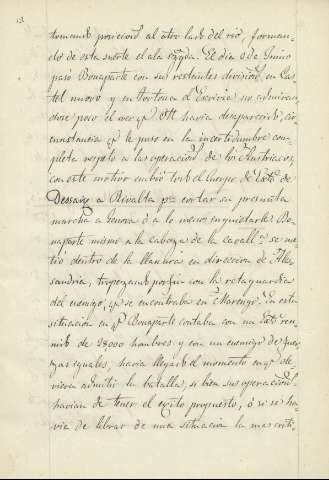 13
tomando posicion al otro lado del rio, forman-
do de esta suerte el ala yzqda. El dia 9 de Junio
paso Bonaparte con sus restantes division.s en Cas
tel nuovo y en Tortona el Escrivia, no admiran
dose poco el ver q.e Ott havia desaparecido, cir-
cunstancia q.e le puso en la incertidumbre com-
pleta respeto a las operacion.s de los Austriacos,
con este motivo embió todo el Cuerpo de Exto. de
Dessaix a Rivalta p.a cortar su presunta
marcha a Genova ó a lo menos inquietarle. Bo-
naparte mismo a la cabeza de la cavall.a se me-
tió dentro de la llanura en direccion de Ale-
sandria, tropezando por fin con la retaguardia
del enemigo, q.e se encontraba en Marengo. En esta
situacion en q.e Bonaparte contaba con un Exto. reu-
nido de 28000 hombres y con un enemigo de fuer-
zas iguales, havia llegado el momento en q.e de-
viera admitir la batalla, si bien sus operacion.s
havian de tener el exito propuesto, ó si se ha-
via de librar de una situacion la mas criti-